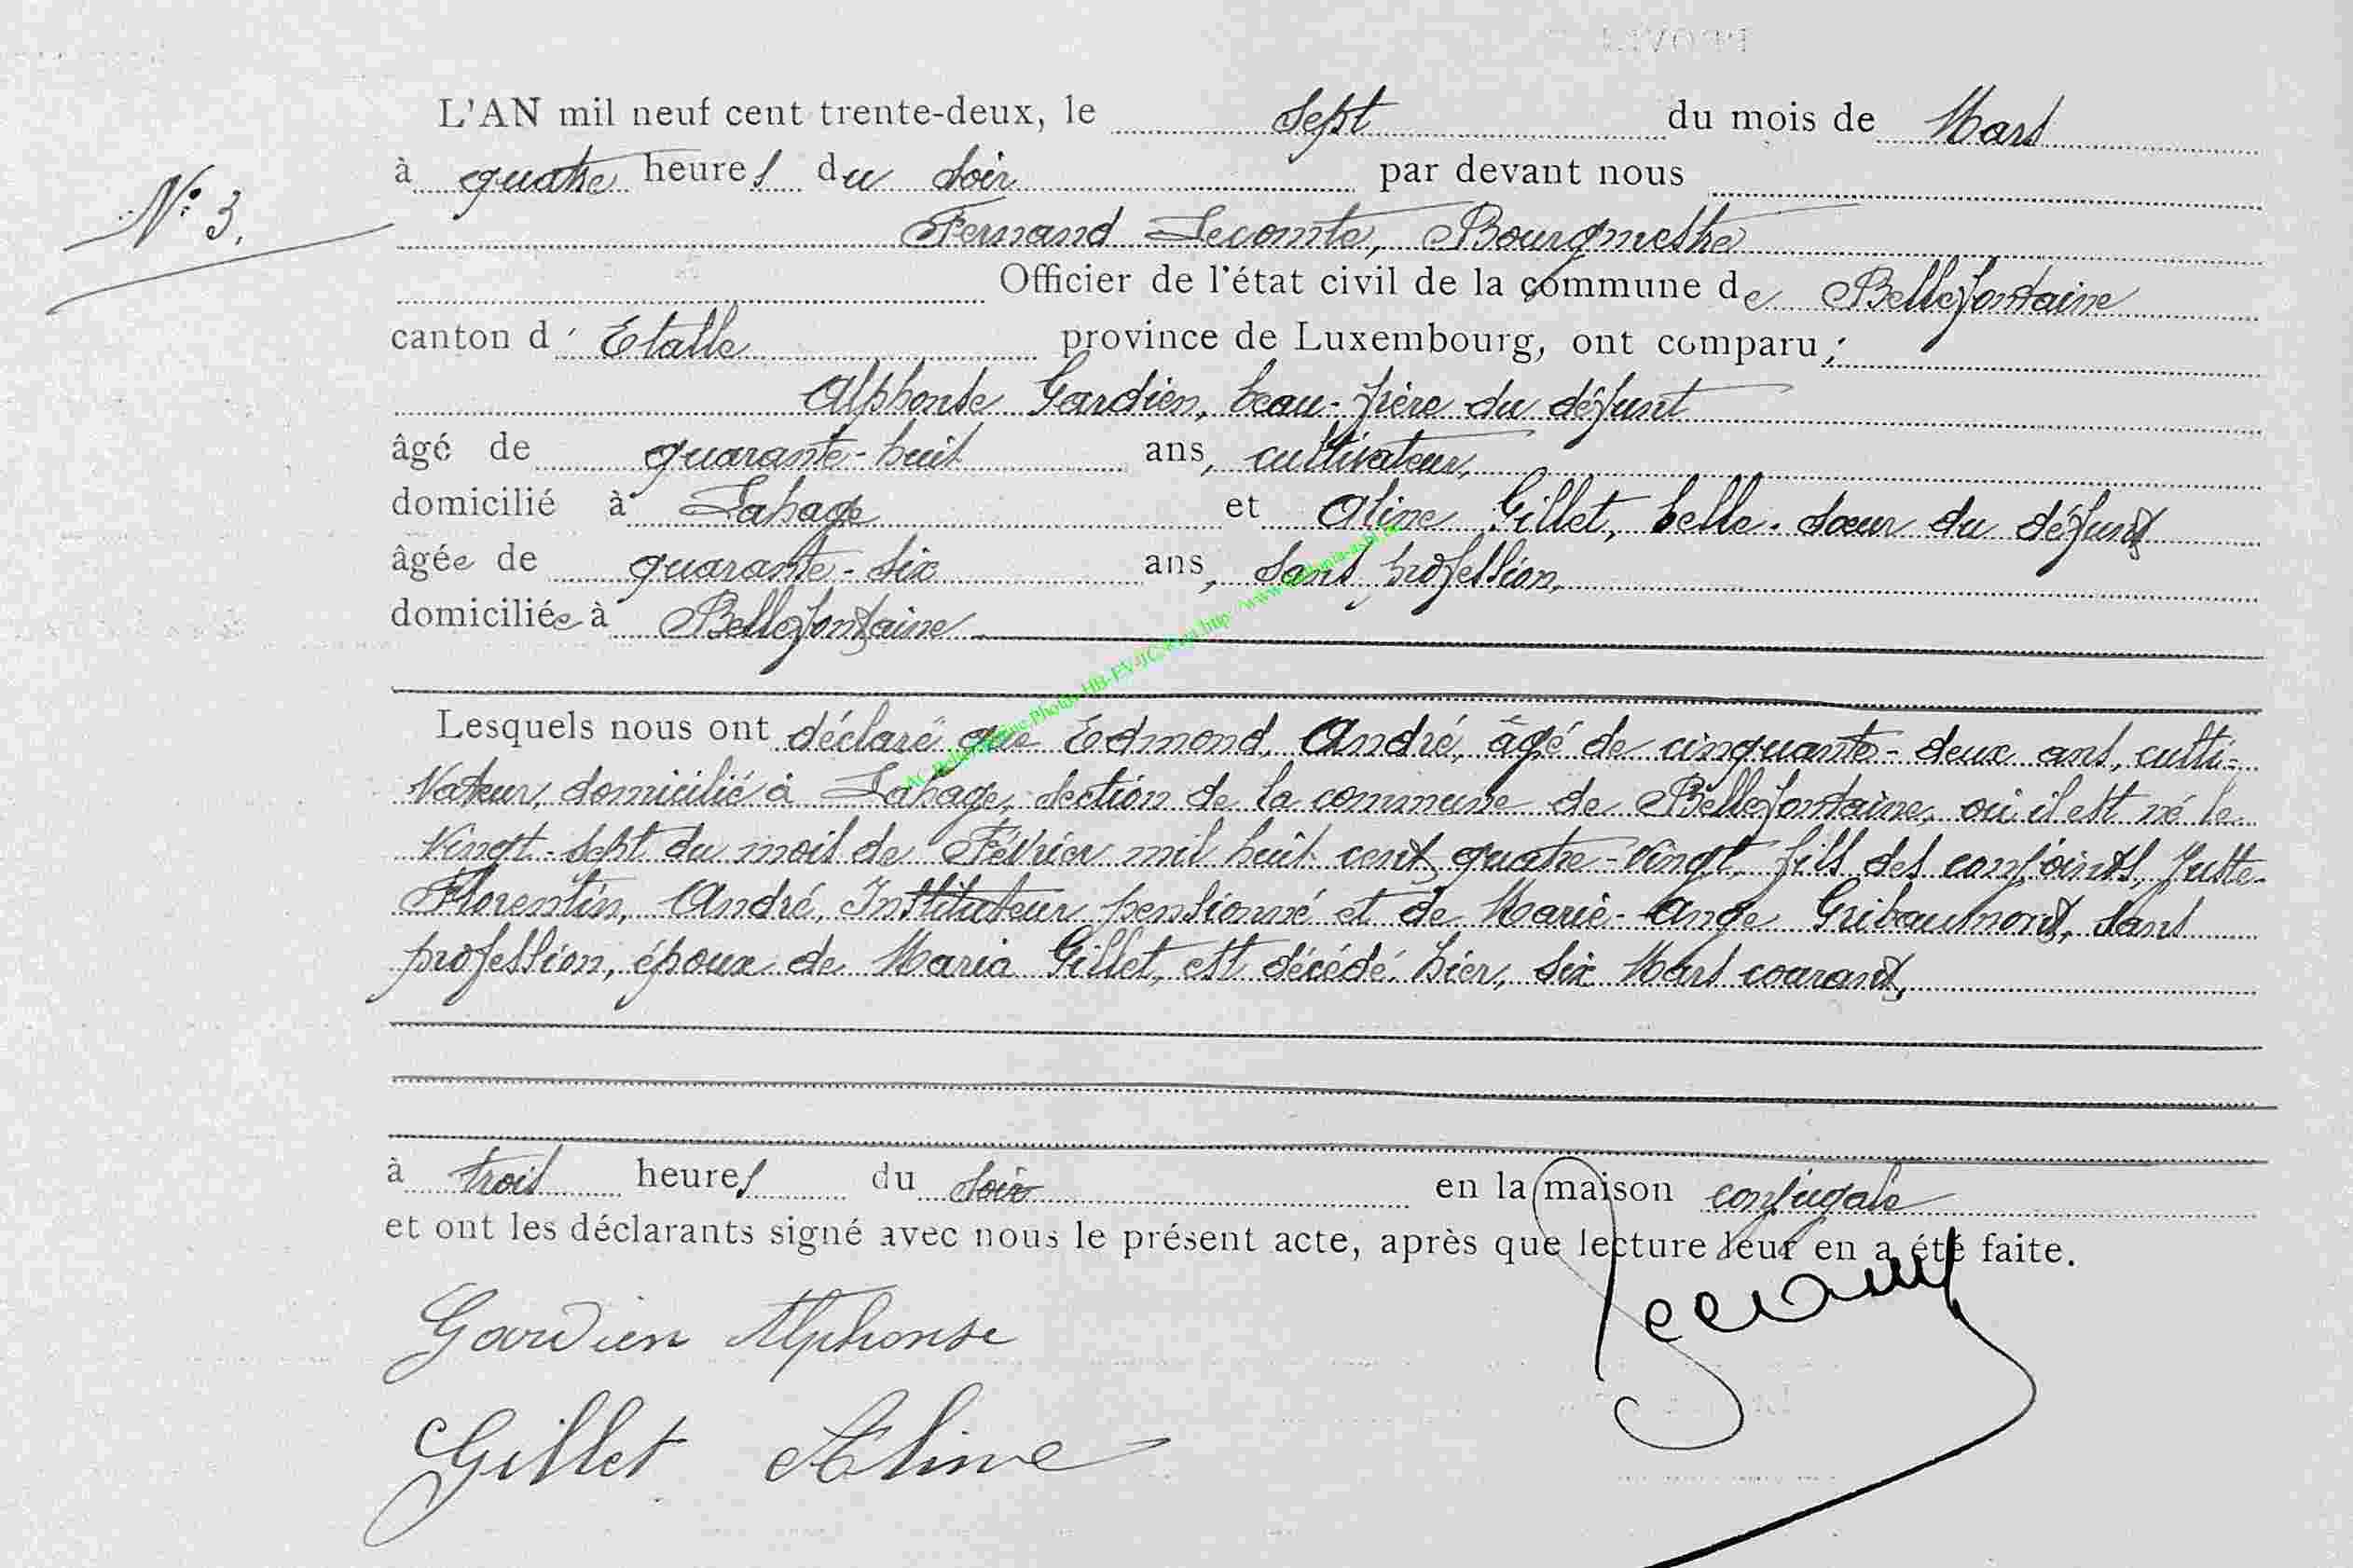 L'AN mil neuf cent trente-deux, le sept du mois de Mars
à quatre heures du soir par devant nous
N° 3.
Fernand Lecomte, Bourgmestre
Officier de l'état civil de la commune de Bellefontaine
canton d' Etalle province de Luxembourg, ont comparu :
Alphonse Gardien, beau-frère du défunt
âgé de quarante-huit ans, cultivateur,
domicilié à Lahage et Aline Gillet, belle-sœur du défunt
âgée de quarante-six ans, sans profession,
domiciliée à Bellefontaine
Lesquels nous ont déclaré que Edmond, André, âgé de cinquante-deux ans, culti-
vateur, domicilié à Lahage, section de la commune de Bellefontaine, où il est né le
vingt-sept du mois de Février mil huit cent quatre-vingt, fils des conjoints, Juste-
Florentin, André, Instituteur pensionné et de Marie-Ange Gribaumont, sans
profession, époux de Maria Gillet, est décédé hier, six Mars courant,
à trois heures du soir en la maison conjugale
et ont les déclarants signé avec nous le présent acte, après que lecture leur en a été faite.
Gardien Alphonse
Gillet Aline